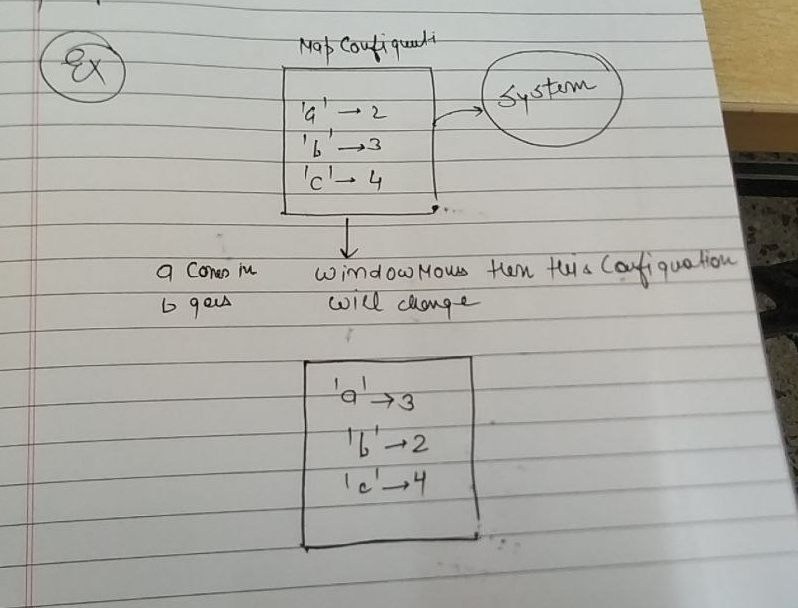 Ex
Map Configurati
'a' → 2
'b' → 3
'c' → 4
System
a comes in
b goes
window Moves then this Configuration
will change
'a' → 3
'b' → 2
'c' → 4